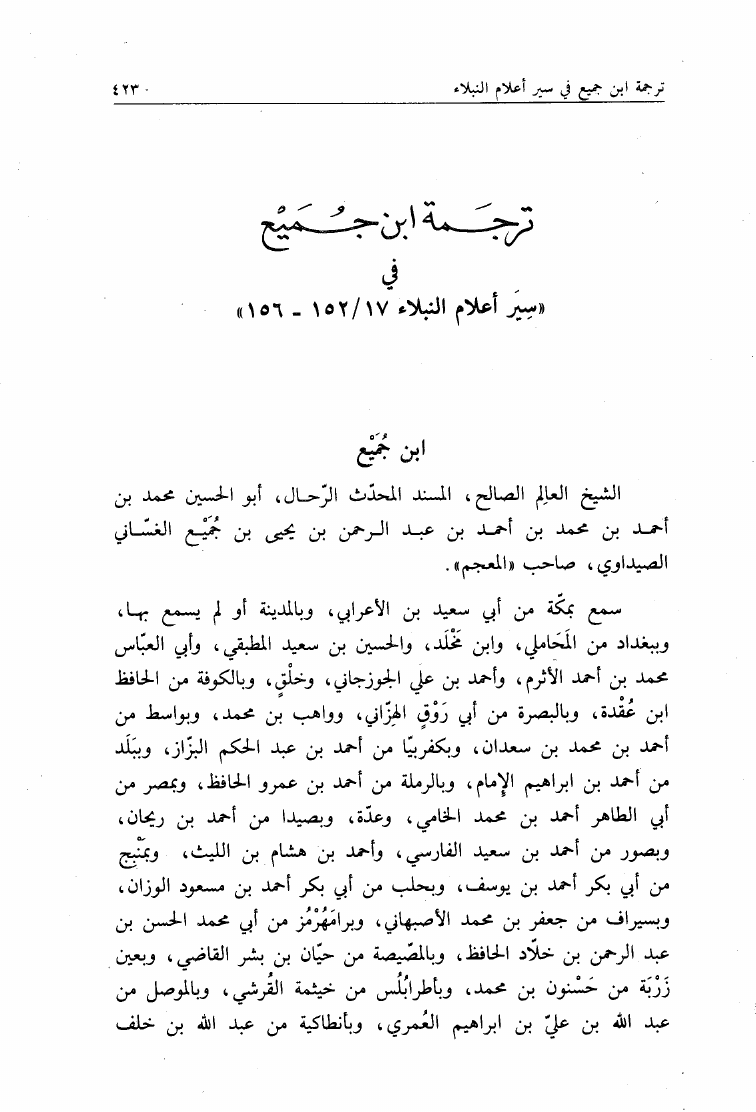 ترجمة ابن جميع في سير أعلام النبلاء ٤٢٣
ترجَمة ابن جُمَيْع
في
«سِيَر أعلام النبلاء ١٧/ ١٥٢ - ١٥٦»
ابن جُمَيْع
الشيخ العالِم الصالح، المسند المحدّث الرّحال، أبو الحسين محمد بن
أحمد بن محمد بن أحمد بن عبد الرحمن بن يحيى بن جُمَيْع الغسّاني
الصيداوي، صاحب «المعجم».
سمع بمكّة من أبي سعيد بن الأعرابي، وبالمدينة أو لم يسمع بها،
وببغداد من المَحَاملي، وابن مَخْلَد، والحسين بن سعيد المطبقي، وأبي العبّاس
محمد بن أحمد الأثرم، وأحمد بن علي الجوزجاني، وخلْقٍ، وبالكوفة من الحافظ
ابن عُقْدة، وبالبصرة من أبي رَوْقٍ الهِزّاني، وواهب بن محمد، وبواسط من
أحمد بن محمد بن سعدان، وبكفربيّا من أحمد بن عبد الحكم البزّاز، وببَلَد
من أحمد بن ابراهيم الإمام، وبالرملة من أحمد بن عمرو الحافظ، وبمصر من
أبي الطاهر أحمد بن محمد الخامي، وعدّة، وبصيدا من أحمد بن ريحان،
وبصور من أحمد بن سعيد الفارسي، وأحمد بن هشام بن الليث، وبمَنْبِج
من أبي بكر أحمد بن يوسف، وبحلب من أبي بكر أحمد بن مسعود الوزان،
وبسيراف من جعفر بن محمد الأصبهاني، وبرامَهُرْمُز من أبي محمد الحسن بن
عبد الرحمن بن خلّاد الحافظ، وبالمصّيصة من حيّان بن بشر القاضي، وبعين
زَرْبَة من حَسْنون بن محمد، وبأطرابُلُس من خيثمة القُرشي، وبالموصل من
عبد الله بن عليّ بن ابراهيم العُمري، وبأنطاكية من عبد الله بن خلف